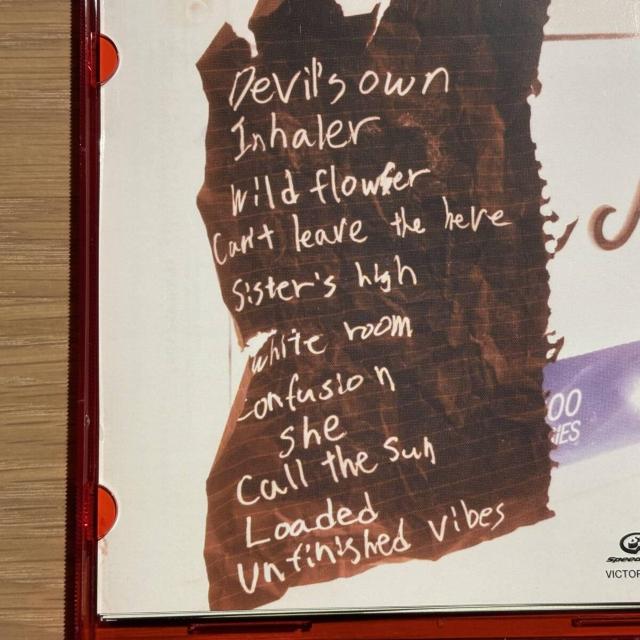 Devil's own
Inhaler
Wild flower
Can't leave the here
Sister's high
White room
Confusion
She
Call the Sun
Loaded
Unfinished vibes
00
IES
Speed
VICTOR